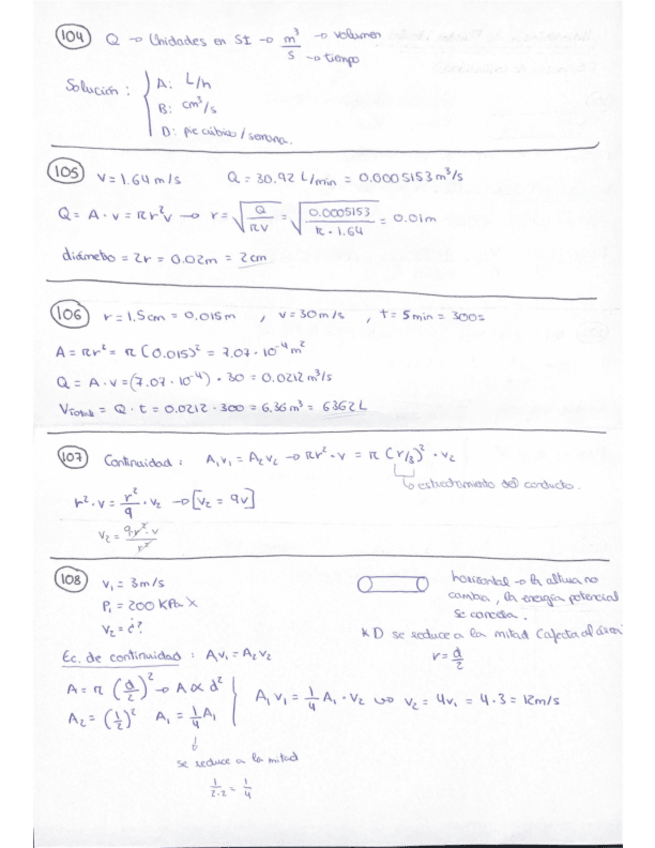 104 Q → Unidades en SI → m³/s → volumen
→ tiempo
Solución : { A: L/h
B: cm³/s
D: pie cúbico / semana.
105 v = 1.64 m/s Q = 30.92 L/min = 0.0005153 m³/s
Q = A · v = πr²v → r = √(Q/πv) = √(0.0005153/π · 1.64) = 0.01m
diámetro = 2r = 0.02m = 2cm
106 r = 1.5cm = 0.015m , v = 30m/s , t = 5min = 300s
A = πr² = π (0.015)² = 7.07 · 10⁻⁴ m²
Q = A · v = (7.07 · 10⁻⁴) · 30 = 0.0212 m³/s
Vtotal = Q · t = 0.0212 · 300 = 6.36m³ = 6362L
107 Continuidad : A₁v₁ = A₂v₂ → πr² · v = π (r/3)² · v₂
↳ estrechamiento del conducto.
r² · v = r²/9 · v₂ → [v₂ = 9v]
v₂ = 9·r²·v/r²
108 v₁ = 3m/s
P₁ = 200 KPa X
v₂ = ¿?
horizontal → la altura no
cambia, la energía potencial
se cancela.
* D se reduce a la mitad (afecta al área)
r = d/2
Ec. de continuidad : A₁v₁ = A₂v₂
A = π (d/2)² → A ∝ d²
A₂ = (1/2)² A₁ = 1/4 A₁
A₁v₁ = 1/4 A₁ · v₂ → v₂ = 4v₁ = 4 · 3 = 12m/s
↓
se reduce a la mitad
1/2·2 = 1/4